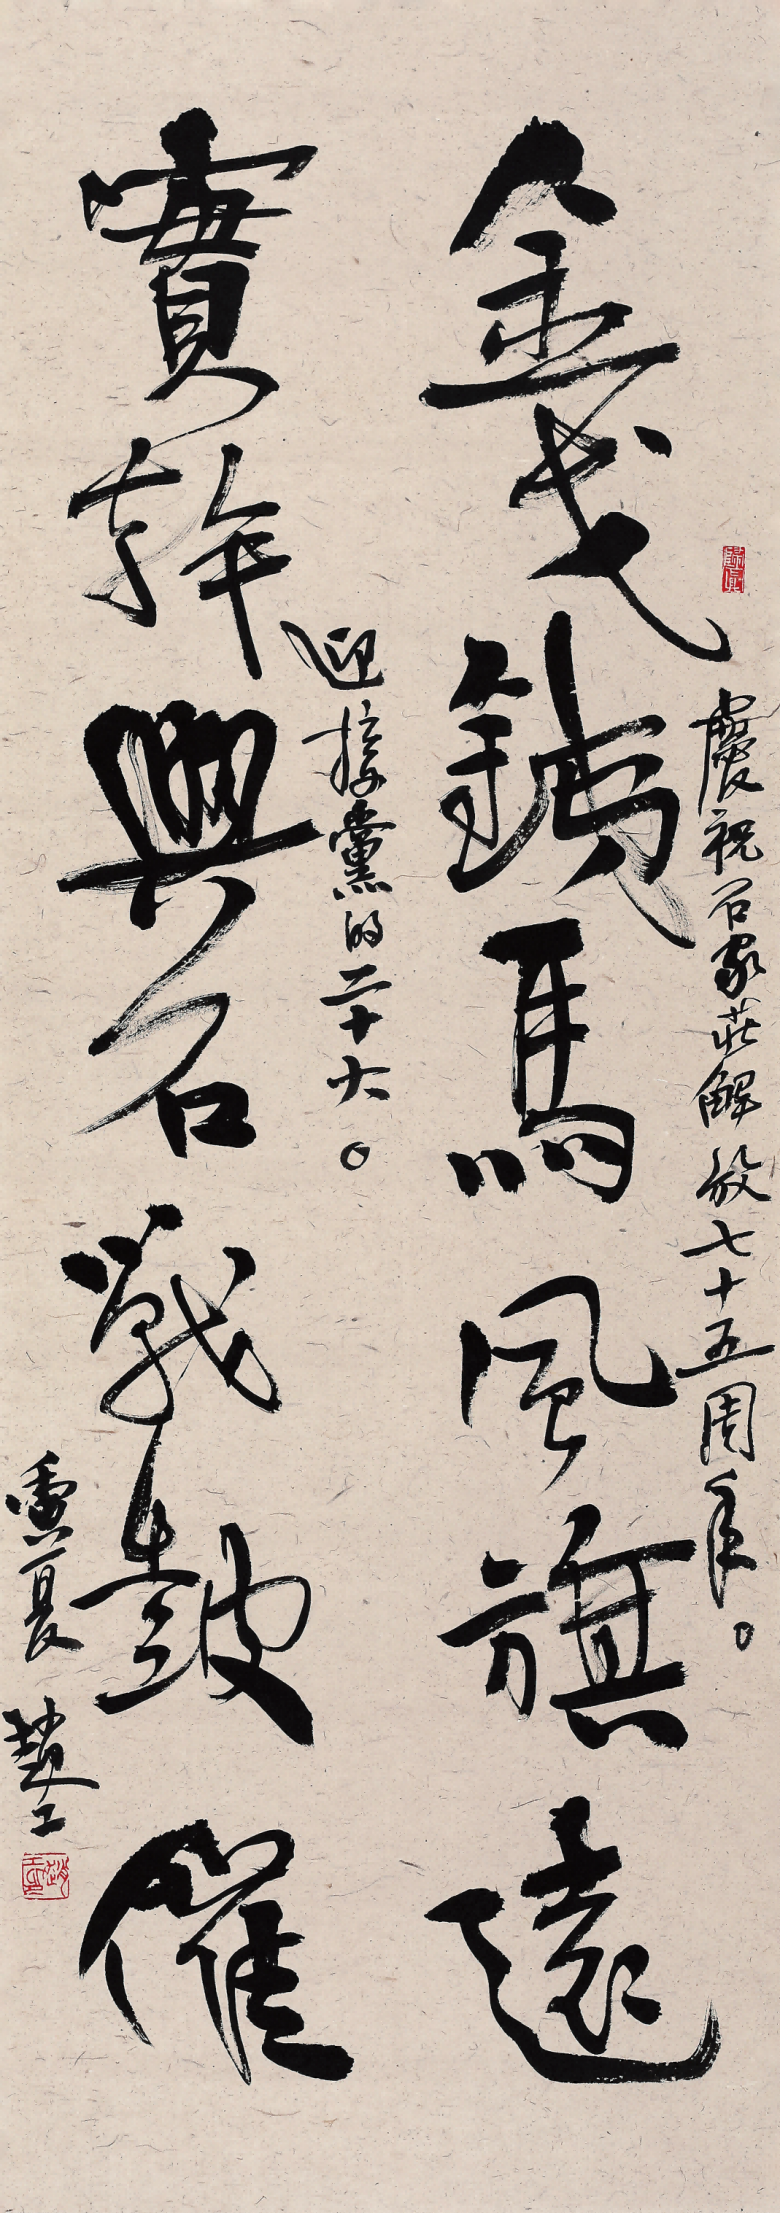 慶祝石家莊解放七十五周年。
金戈鐵馬風旗遠
迎接黨的二十大。
實幹興石戰鼓催
夏 趙工